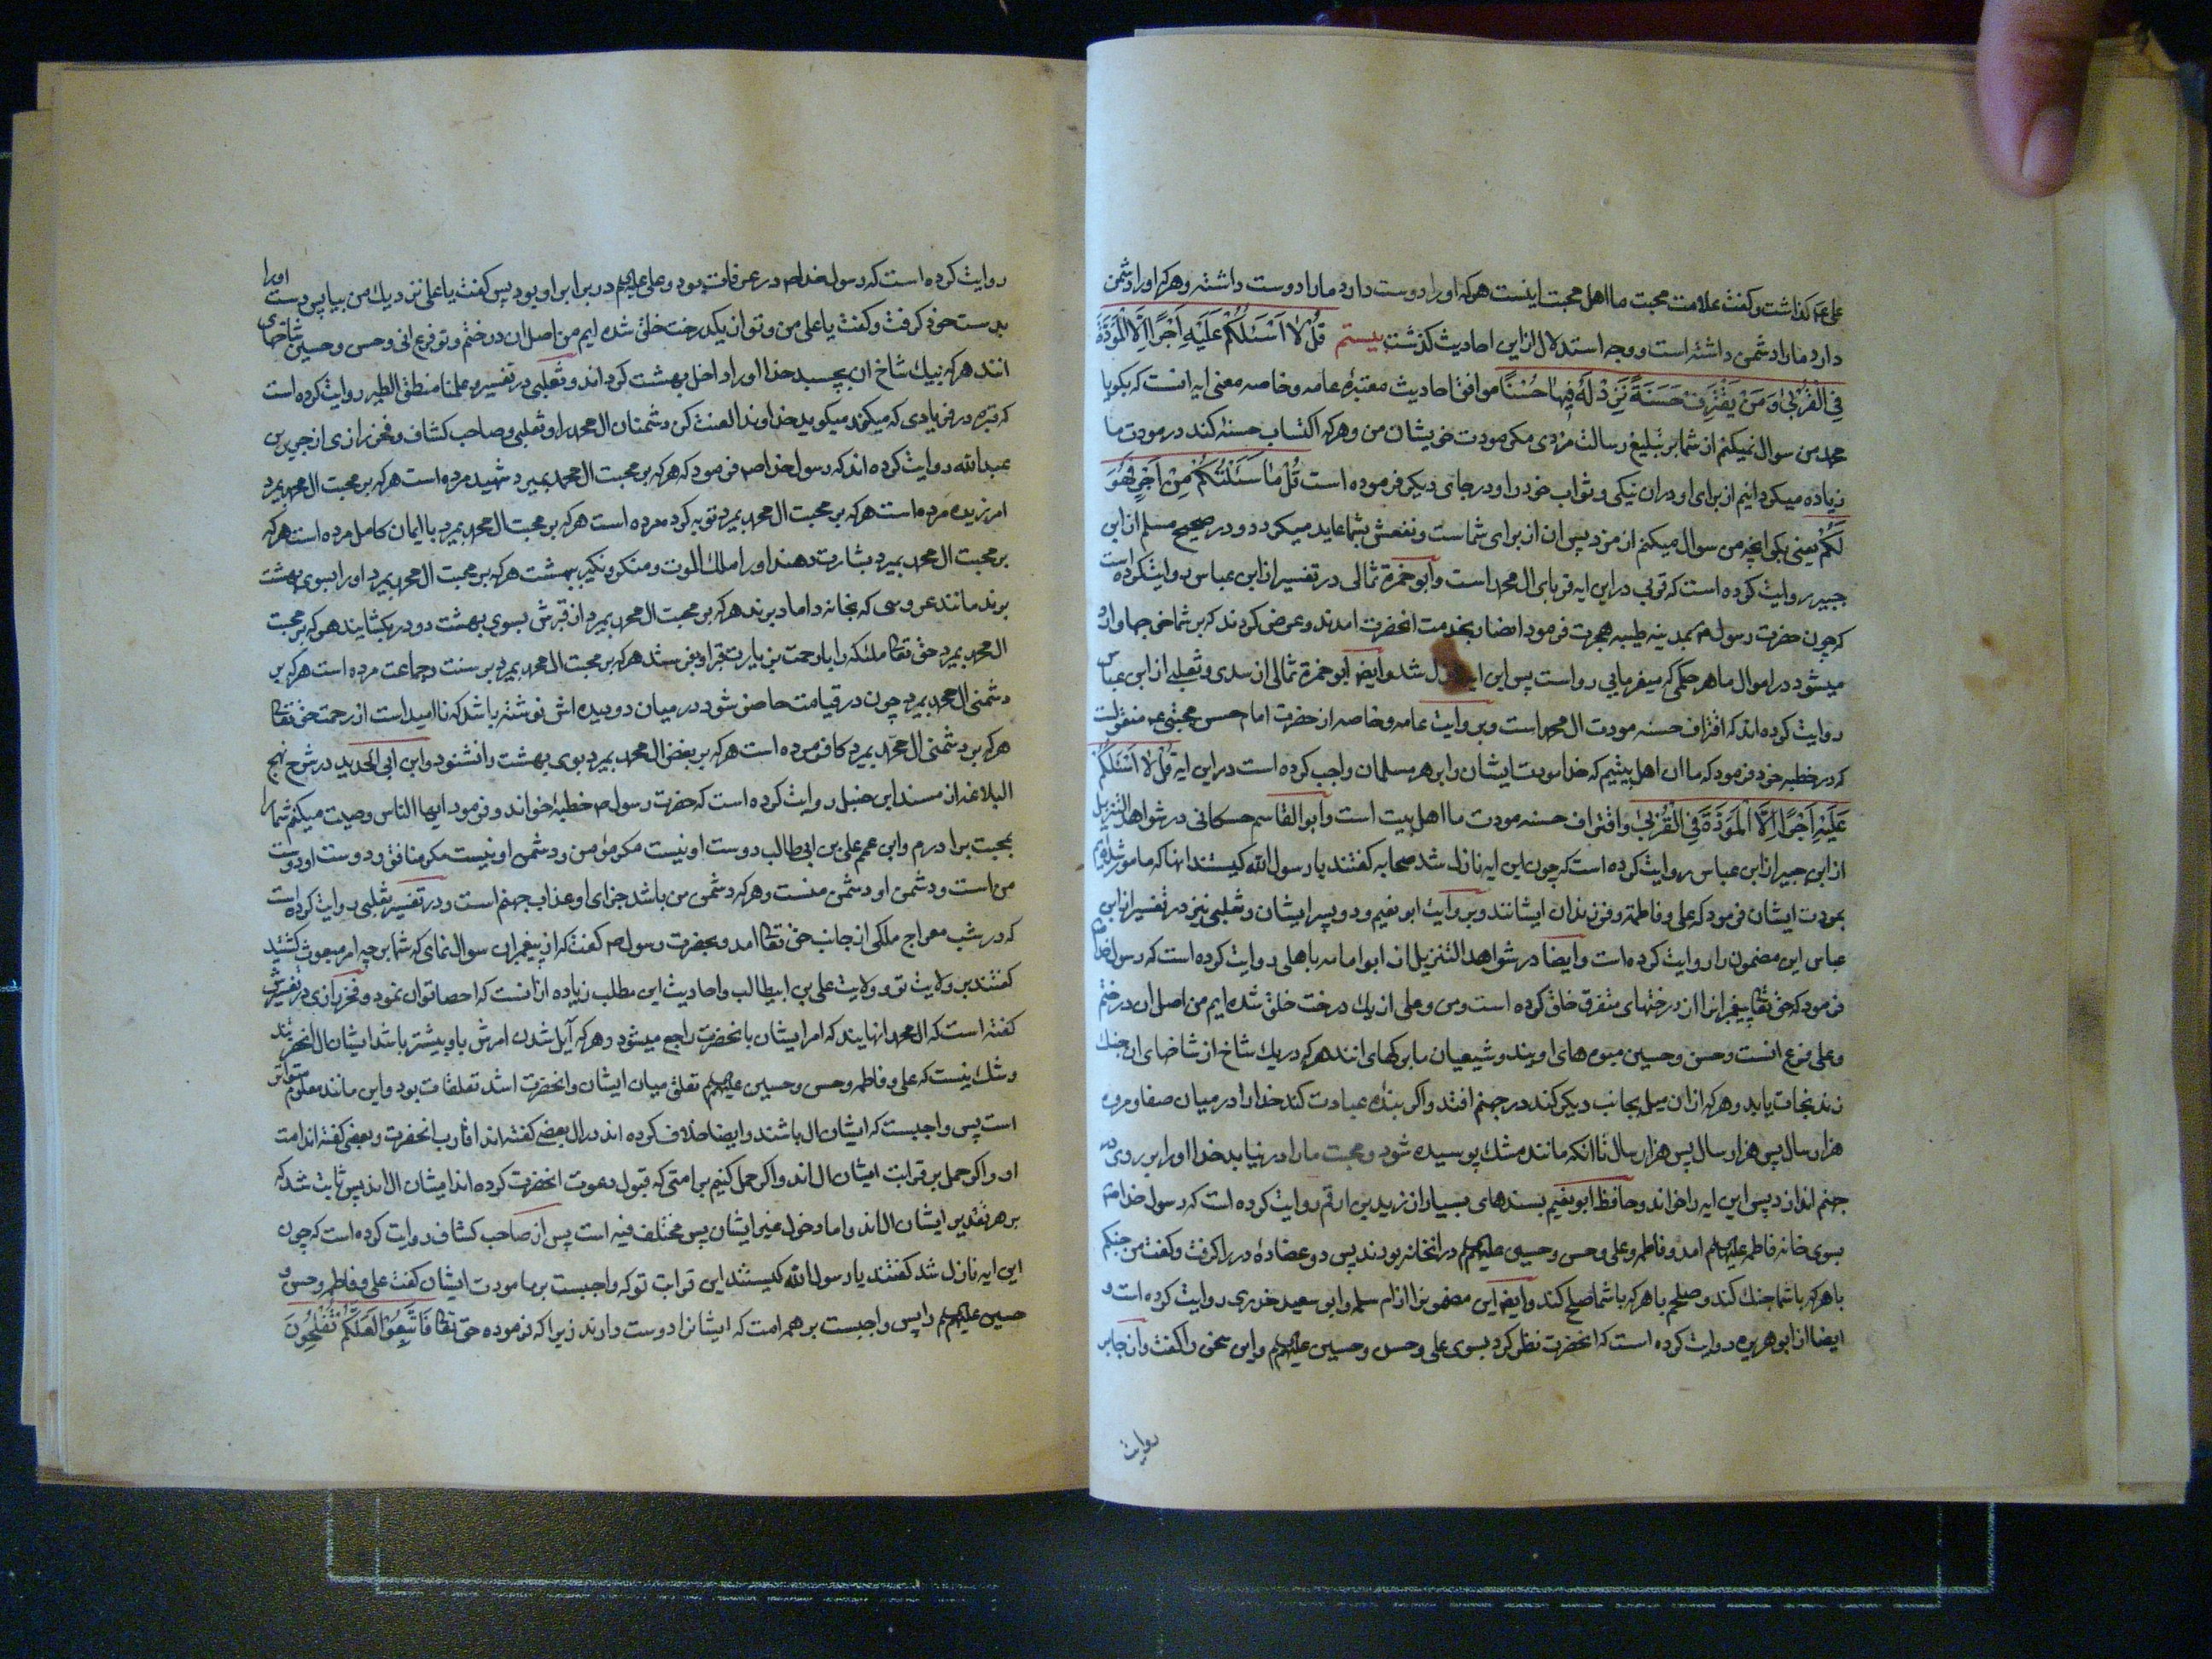 علی ع گذاشت و گفت علامت محبت ما اهل محبت اینست هر که او را دوست دارد ما را دوست داشته و هر که او را دشمن
دارد ما را دشمن داشته است و وجه استدلال از این احادیث گذشت بیستم قُلْ لٰا اَسْئَلُکُمْ عَلَیْهِ اَجْرًا اِلَّا الْمَوَدَّةَ
فِی الْقُرْبیٰ وَ مَنْ یَقْتَرِفْ حَسَنَةً نَزِدْ لَهُ فِیهٰا حُسْنًا موافق احادیث معتبرهٔ عامه و خاصه معنی ایه انست که بکو یا
محمد من سوال نمیکنم از شما بر تبلیغ رسالت مزدی مکر مودت خویشان من و هر که اکتساب حسنه کند در مودت ما
زیاده میکردانیم از برای او در ان نیکی و ثواب خود را و در جای دیکر فرموده است قُلْ مٰا سَئَلْتُکُمْ مِنْ اَجْرٍ فَهُوَ
لَکُمْ یعنی بکو انچه من سوال میکنم از مزد پس ان از برای شماست و نفعش بشما عاید میکردد و در صحیح مسلم از ابن
جبیر روایت کرده است که قربی در این ایه قربای ال محمد است و ابو حمزه ثمالی در تفسیر از ابن عباس روایت کرده است
که چون حضرت رسول ص بمدینه طیبه هجرت فرمود انصار بخدمت انحضرت امدند و عرض کردند که بر شما خرجها وارد
میشود در اموال ما هر حکمی که میفرمایی رواست پس این ایه نازل شد و ایضا ابو حمزه ثمالی از سدی و ثعلبی از ابن عباس
روایت کرده اند که اقتراف حسنه مودت ال محمد است و بروایت عامه و خاصه از حضرت امام حسن مجتبی ع منقولست
که در خطبه خود فرمود که ما ان اهل بیتیم که خدا مودت ایشان را بر هر مسلمان واجب کرده است در این ایه قُلْ لٰا اَسْئَلُکُمْ
عَلَیْهِ اَجْرًا اِلَّا الْمَوَدَّةَ فِی الْقُرْبیٰ و اقتراف حسنه مودت ما اهل بیت است و ابو القاسم حسکانی در شواهد التنزیل
از ابن جبیر از ابن عباس روایت کرده است که چون این ایه نازل شد صحابه کفتند یا رسول الله کیستند انها که ما مور شده ایم
بمودت ایشان فرمود که علی و فاطمه و فرزندان ایشانند و بروایت ابو نعیم و دو پسر ایشان و ثعلبی نیز در تفسیر از ابن
عباس این مضمون را روایت کرده است و ایضا در شواهد التنزیل از ابو امامه باهلی روایت کرده است که رسول خدا ص
فرمود که حق تعٰا پیغمبرانرا از درختهای متفرق خلق کرده است و من و علی از یک درخت خلق شده ایم من اصل ان درختم
و علی فرع انست و حسن و حسین میوه های اویند و شیعیان ما برکهای انند هر که در یک شاخ از شاخهای ان چنک
زند نجات یابد و هر که از ان میل بجانب دیکر کند در جهنم افتد و اکر بندهٔ عبادت کند خدا را در میان صفا و مروه
هزار سال پس هزار سال پس هزار سال تا انکه مانند مشک پوسیده شود و محبت ما را در نیابد خدا او را بر روی در
جهنم اندازد پس این ایه را خواند و حافظ ابو نعیم بسندهای بسیار از زید بن ارقم روایت کرده است که رسول خدا ص
بسوی خانه فاطمه علیها السلم امد و فاطمه و علی و حسن و حسین علیهم السلم در انخانه بودند پس دو عضادهٔ در را کرفت و کفت من جنکم
با هر که با شما جنک کند و صلحم با هر که با شما صلح کند و ایضا این مضمونرا از ام سلمه و ابو سعید خدری روایت کرده است و
ایضا از ابو هریره روایت کرده است که انحضرت نظر کرد بسوی علی و حسن و حسین علیهم السلم و این سخن را کفت و از جابر
روایت
روایت کرده است که رسول خدا ص در عرفات بود و علی علیه السلم در برابر او بود پس کفت یا علی نزدیک من بیا پس دست او را
بدست خود کرفت و کفت یا علی من و تو از یکدرخت خلق شده ایم من اصل ان درختم و تو فرع انی و حسن و حسین شاخهای
انند هر که بیک شاخ ان بچسبد خدا او را داخل بهشت کرداند و ثعلبی در تفسیر علمنا منطق الطیر روایت کرده است
که قبره در فریادی که میکند میکوید خداوندا لعنت کن دشمنان ال محمد را و ثعلبی و صاحب کشاف و فخر رازی از جریر بن
عبدالله روایت کرده اند که رسول خدا ص فرمود که هر که بر محبت ال محمد بمیرد شهید مرده است هر که بر محبت ال محمد بمیرد
امرزیده مرده است هر که بر محبت ال محمد بمیرد توبه کرده مرده است هر که بر محبت ال محمد بمیرد با ایمان کامل مرده است هر که
بر محبت ال محمد بمیرد بشارت دهند او را ملک الموت و منکر و نکیر ببهشت هر که بر محبت ال محمد بمیرد او را بسوی بهشت
برند مانند عروسی که بخانه داماد برند هر که بر محبت ال محمد بمیرد از قبرش بسوی بهشت دو در بکشایند هر که بر محبت
ال محمد بمیرد حق تعٰا ملئکه را با رحمت بزیارت قبر او بفرستد هر که بر محبت ال محمد بمیرد بر سنت و جماعت مرده است هر که بر
دشمنی ال محمد بمیرد چون در قیامت حاضر شود در میان دو دیده اش نوشته باشد که نا امید است از رحمت حق تعٰا
هر که بر دشمنی ال محمد بمیرد کافر مرده است هر که بر بغض ال محمد بمیرد بوی بهشت را نشنود و ابن ابی الحدید در شرح نهج
البلاغه از مسند ابن حنبل روایت کرده است که حضرت رسول ص خطبهٔ خواند و فرمود ایها الناس وصیت میکنم شما را
بمحبت برادرم و ابن عمم علی بن ابیطالب دوست او نیست مکر مؤمن و دشمن او نیست مکر منافق و دوست او دوست
من است و دشمن او دشمن منست و هر که دشمن من باشد جزای او عذاب جهنم است و در تفسیر ثعلبی روایت کرده است
که در شب معراج ملکی از جانب حق تعٰا امد و بحضرت رسول ص کفت که از پیغمبران سوال نمای که شما بر چه امر مبعوث کشتید
کفتند بر ولایت تو و ولایت علی بن ابیطالب و احادیث این مطلب زیاده از انست که احصا توان نمود و فخر رازی در تفسیرش
کفته است که ال محمد انهایند که امر ایشان بانحضرت راجع میشود و هر که آیل شدن امرش باو بیشتر باشد ایشان ال انحضرتند
و شک نیست که علی و فاطمه و حسن و حسین علیهم السلم تعلق میان ایشان و انحضرت اشد تعلقات بود و این مانند معلوم متواتر
است پس واجبست که ایشان ال باشند و ایضا خلاف کرده اند در ال بعضی کفته اند اقارب انحضرت و بعضی کفته اند امت
او و اکر حمل بر قرابت ایشان ال اند و اکر حمل کنیم بر امتی که قبول دعوت انحضرت کرده اند ایشان ال اند پس ثابت شد که
بر هر تقدیر ایشان ال اند و اما دخول غیر ایشان پس مختلف فیه است پس از صاحب کشاف روایت کرده است که چون
این ایه نازل شد کفتند یا رسول الله کیستند این قرابت تو که واجبست بر ما مودت ایشان کفت علی و فاطمه و حسن و
حسین علیهم السلم را پس واجبست بر همه امت که ایشانرا دوست دارند زیرا که فرموده حق تعٰا فَاتَّبِعُوا لَعَلَّکُمْ تُفْلِحُونَ